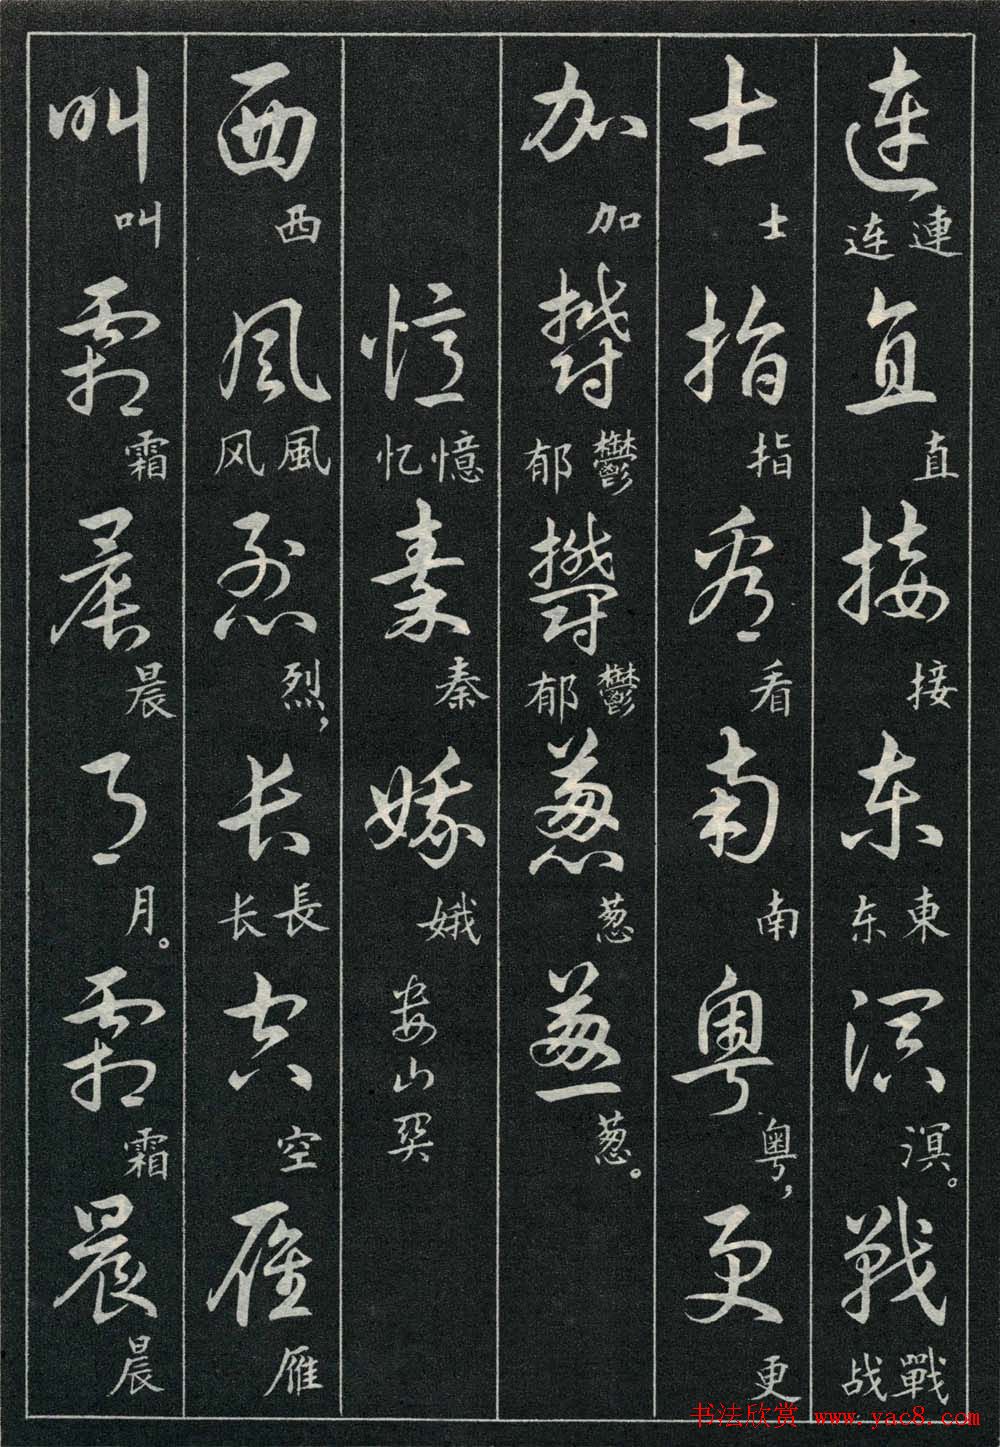 連 連 连 直 直 接 接 東 東 东 溟 溟。 戰 戰 战
士 士 指 指 看 看 南 南 粤 粤， 更 更
加 加 鬱 鬱 郁 鬱 鬱 郁 葱 葱 葱 葱。
憶 憶 忆 秦 秦 娥 娥 娄山关
西 西 風 風 风 烈 烈， 長 長 长 空 空 雁 雁
叫 叫 霜 霜 晨 晨 月 月。 霜 霜 晨 晨
书法欣赏 www.yac8.com